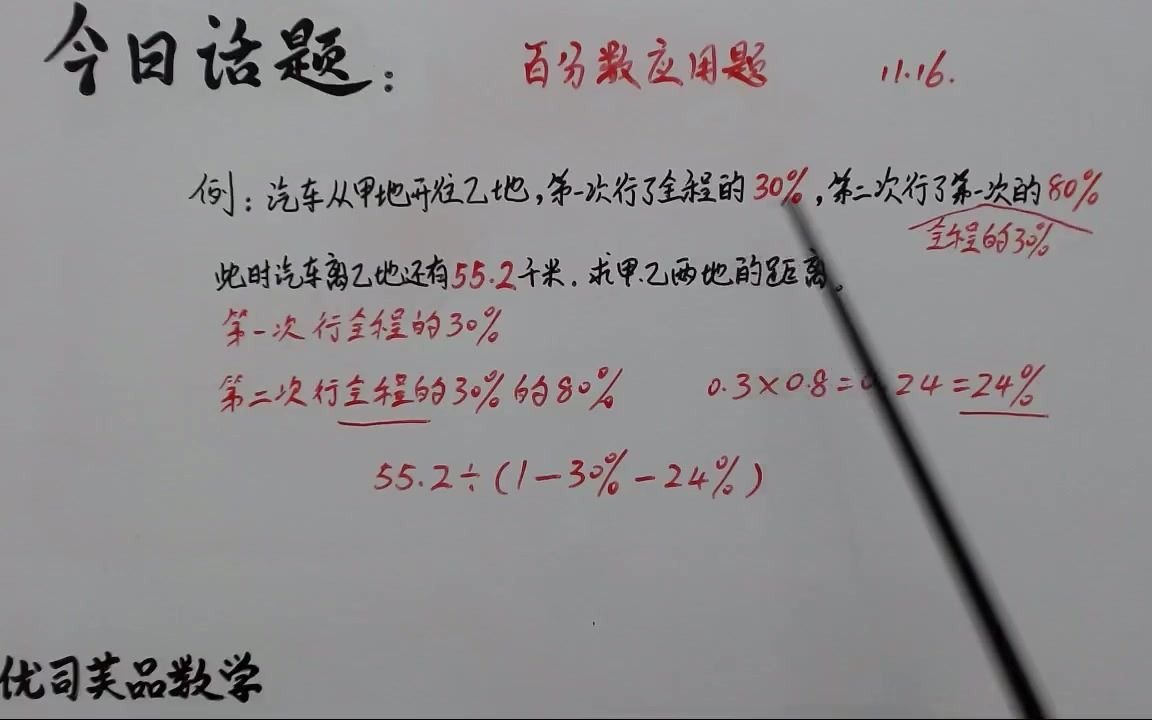 今日话题：
百分数应用题 11.16.
例：汽车从甲地开往乙地，第一次行了全程的30%，第二次行了第一次的80%
全程的30%
此时汽车离乙地还有55.2千米．求甲.乙两地的距离。
第一次行全程的30%
第二次行全程的30%的80% 0.3×0.8=0.24=24%
55.2÷(1－30%－24%)
优司芙品数学